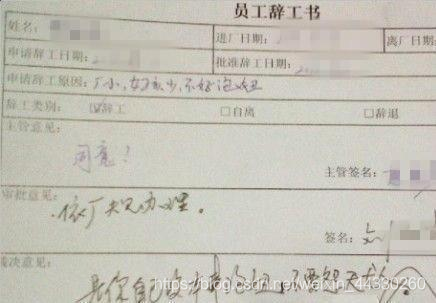 员工辞工书
姓名: 进厂日期: 离厂日期:
申请辞工日期: 批准辞工日期:
申请辞工原因: 厂小,女孩少,不好泡妞
辞工类别: ☑辞工 □自离 □辞退
主管意见:
同意!
主管签名:
审批意见:
依厂规办理。
签名:
裁决意见:
是你自己没本事泡妞,不要怨
https://blog.csdn.net/weixin_44330260